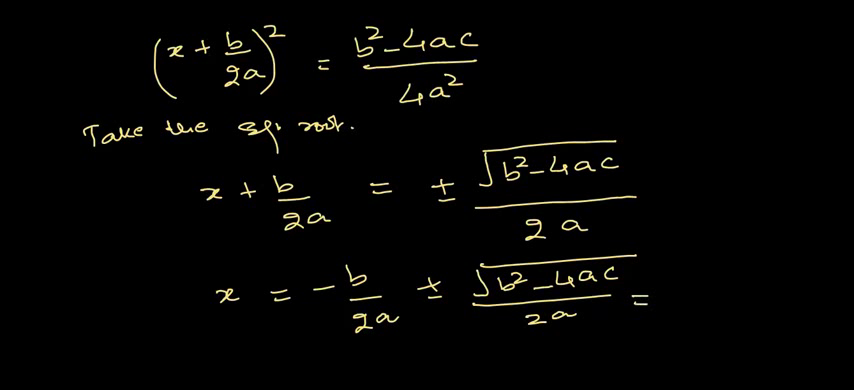 (x + b/2a)² = b² - 4ac / 4a²
Take the sq. root.
x + b/2a = ± √(b² - 4ac) / 2a
x = - b/2a ± √(b² - 4ac) / 2a =